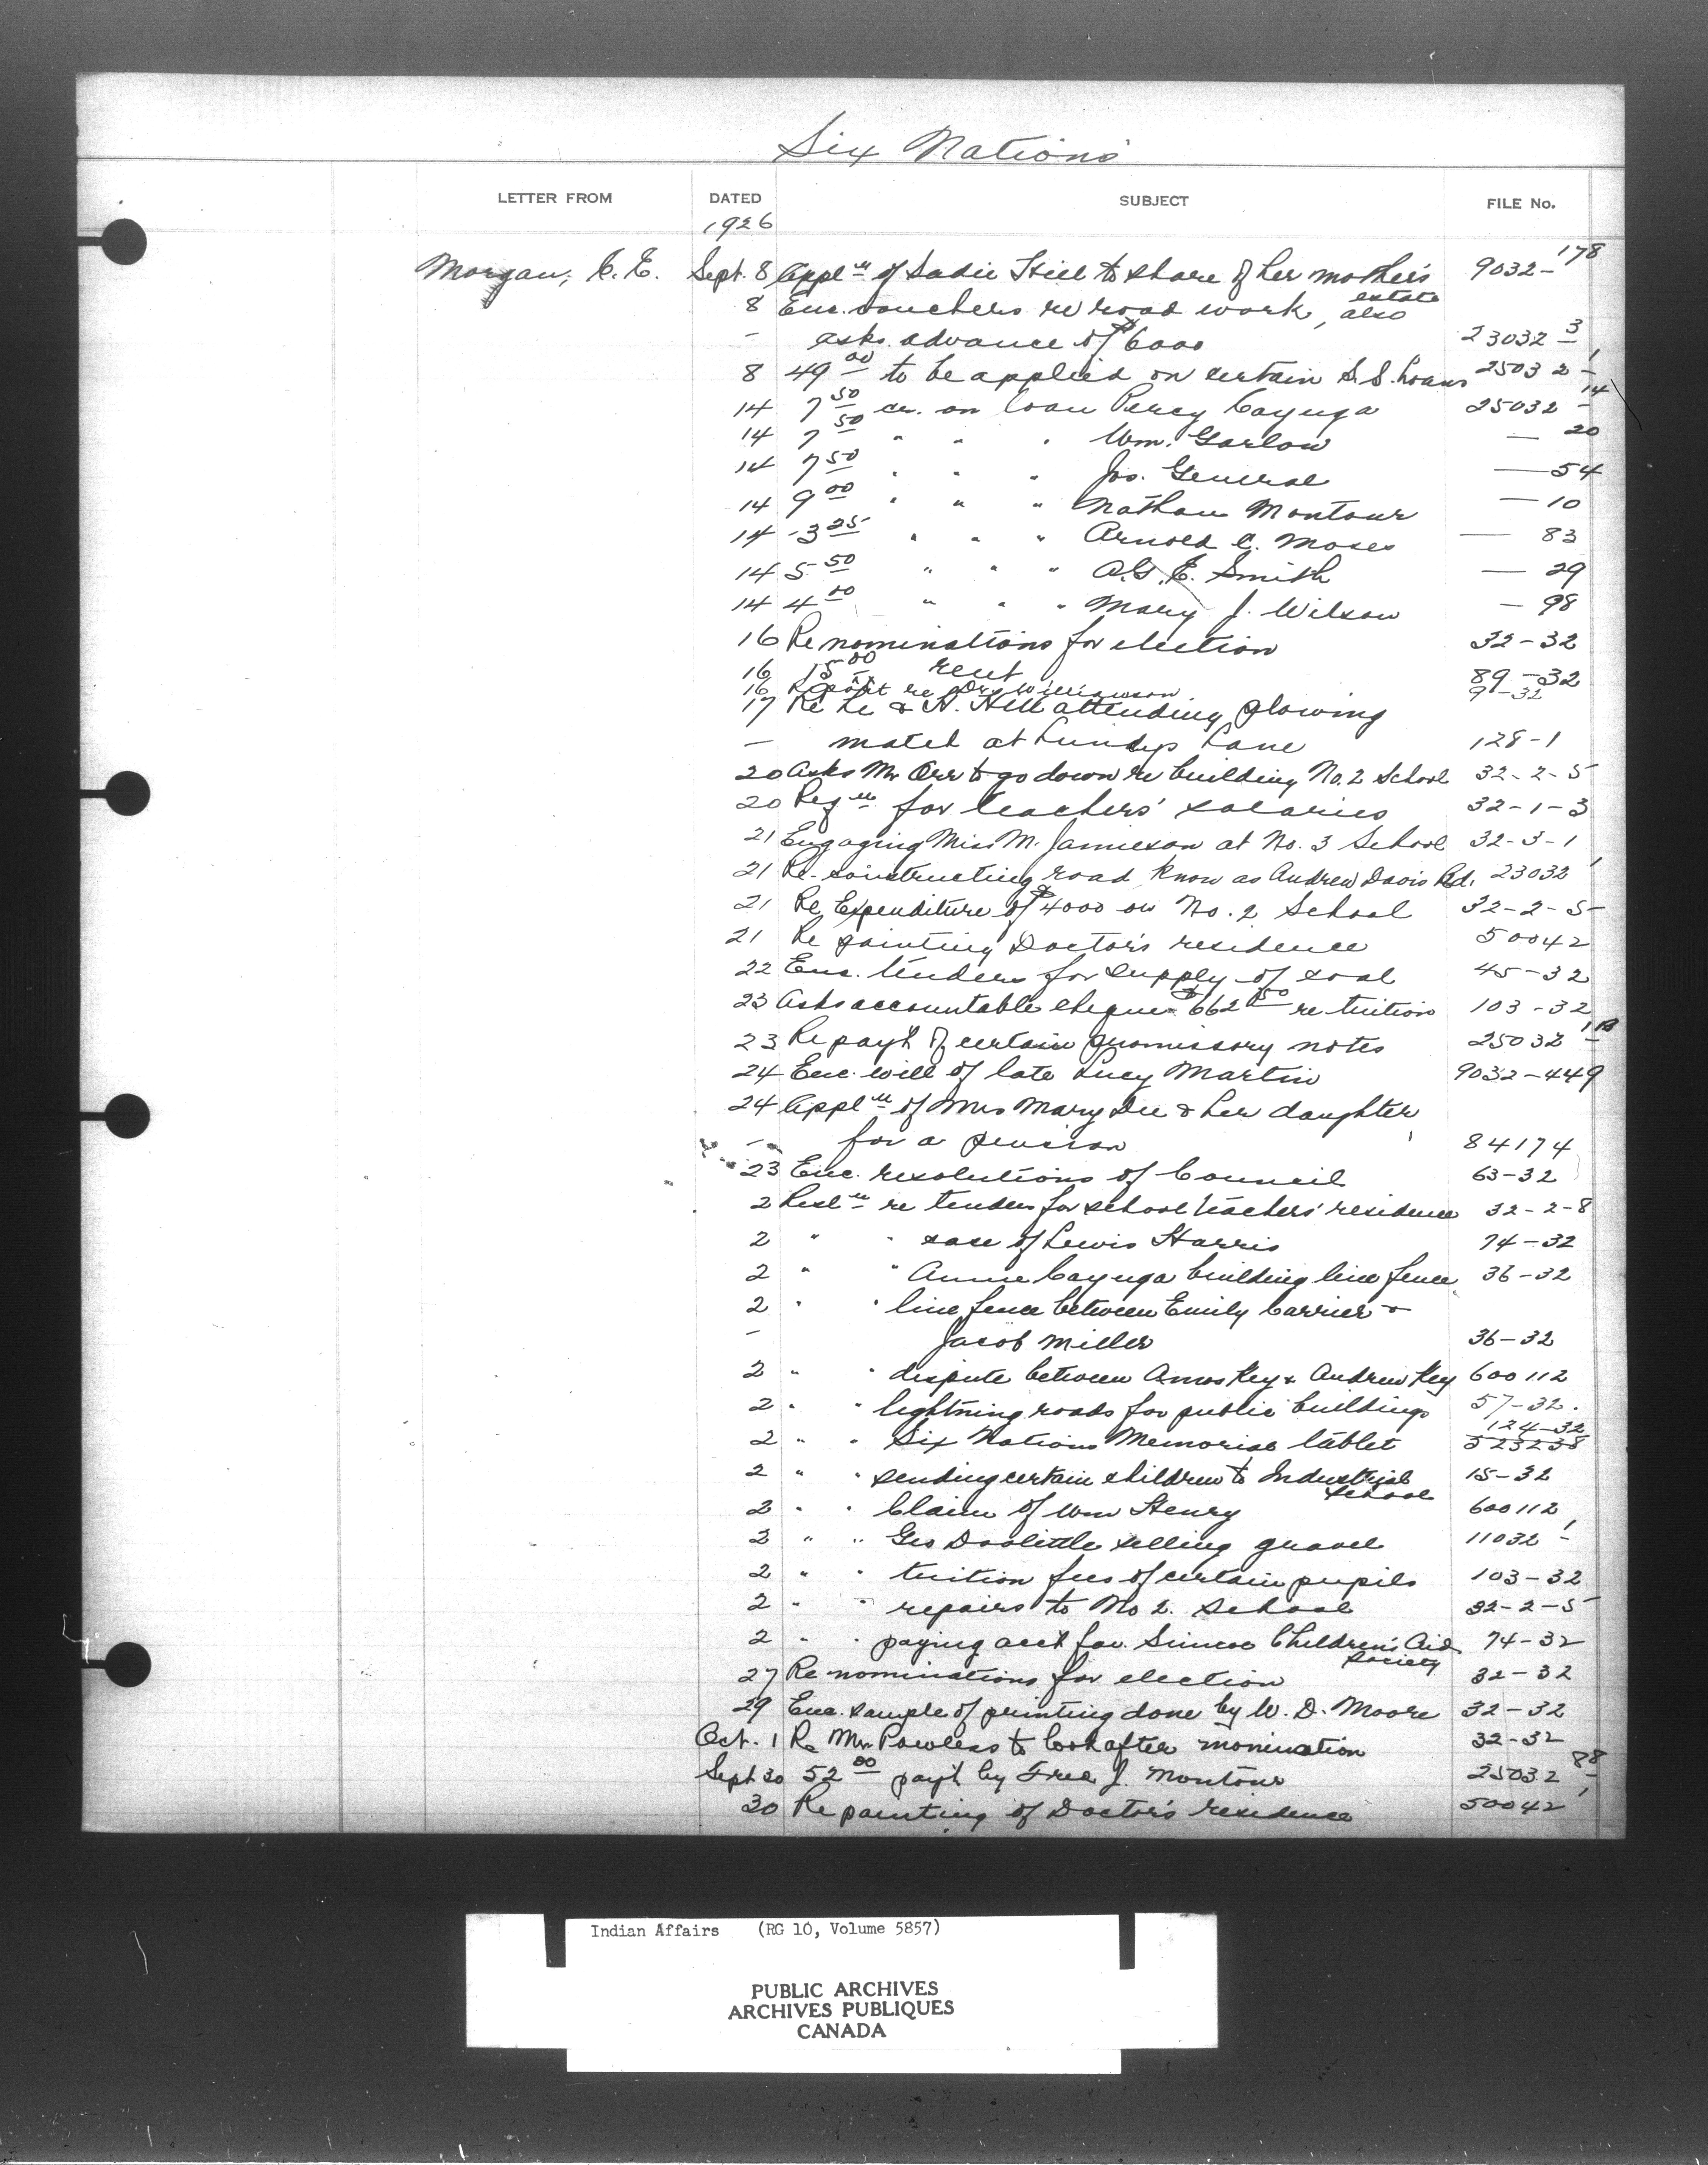 Six Nations
LETTER FROM DATED SUBJECT FILE No.
1926
Morgan, C. E. Sept. 8 Appl'n of Sadie Hill to share of her mother's estate 9032-178
8 Enc. vouchers re road work, also
- asks advance of $6000 23032-3
8 49.00 to be applied on certain S.S. Loans 25032-1
14 7.50 cr. on loan Percy Cayuga 25032-14
14 7.50 " " " Wm. Garlow — 20
14 7.50 " " " Jos. General — 54
14 9.00 " " " Nathan Montour — 10
14 3.25 " " " Arnold C. Moses — 83
14 5.50 " " " A.G.E. Smith — 29
14 4.00 " " " Mary J. Wilson — 98
16 Re nominations for election 32-32
16 15.00 rent 89-32
16 Report re Dr. Williamson 9-32
17 Re L. & H. Hill attending plowing
- match at Lundys Lane 128-1
20 Asks Mr Orr to go down re building No. 2 School 32-2-5
20 Reqn for teachers' salaries 32-1-3
21 Engaging Miss M. Jamieson at No. 3 School 32-3-1
21 Re. constructing road know as Andrew Davis Rd. 23032-1
21 Re Expenditure of $4000 on No. 2 School 32-2-5
21 Re painting Doctor's residence 50042
22 Enc. tenders for supply of coal 45-32
23 Asks accountable cheque $662.50 re tuition 103-32
23 Re payt of certain promissory notes 25032-1B
24 Enc. will of late Lucy Martin 9032-449
24 Appl'n of Mrs Mary Dee & her daughter
- for a pension 84174
23 Enc. resolutions of Council 63-32
2 Resl'n re tenders for school teachers' residence 32-2-8
2 " " case of Lewis Harris 74-32
2 " " Annie Cayuga building line fence 36-32
2 " " line fence between Emily Carrier &
- Jacob Miller 36-32
2 " " dispute between Amos Key & Andrew Key 600112
2 " " lightning roads for public buildings 57-32.
2 " " Six Nations Memorial tablet 124-32 523238
2 " " sending certain children to Industrial School 15-32
2 " " Claim of Wm Henry 600112
2 " " Geo Doolittle selling gravel 11032-1
2 " " tuition fees of certain pupils 103-32
2 " " repairs to No 2. School 32-2-5
2 " " paying acct fav. Simcoe Children's Aid Society 74-32
27 Re nominations for election 32-32
29 Enc. sample of printing done by W. D. Moore 32-32
Oct. 1 Re Mr. Powless to look after nomination 32-32
Sept 30 52.00 payt by Fred J. Montour 25032-88
30 Re painting of Doctor's residence 50042-1
Indian Affairs (RG 10, Volume 5857)
PUBLIC ARCHIVES
ARCHIVES PUBLIQUES
CANADA